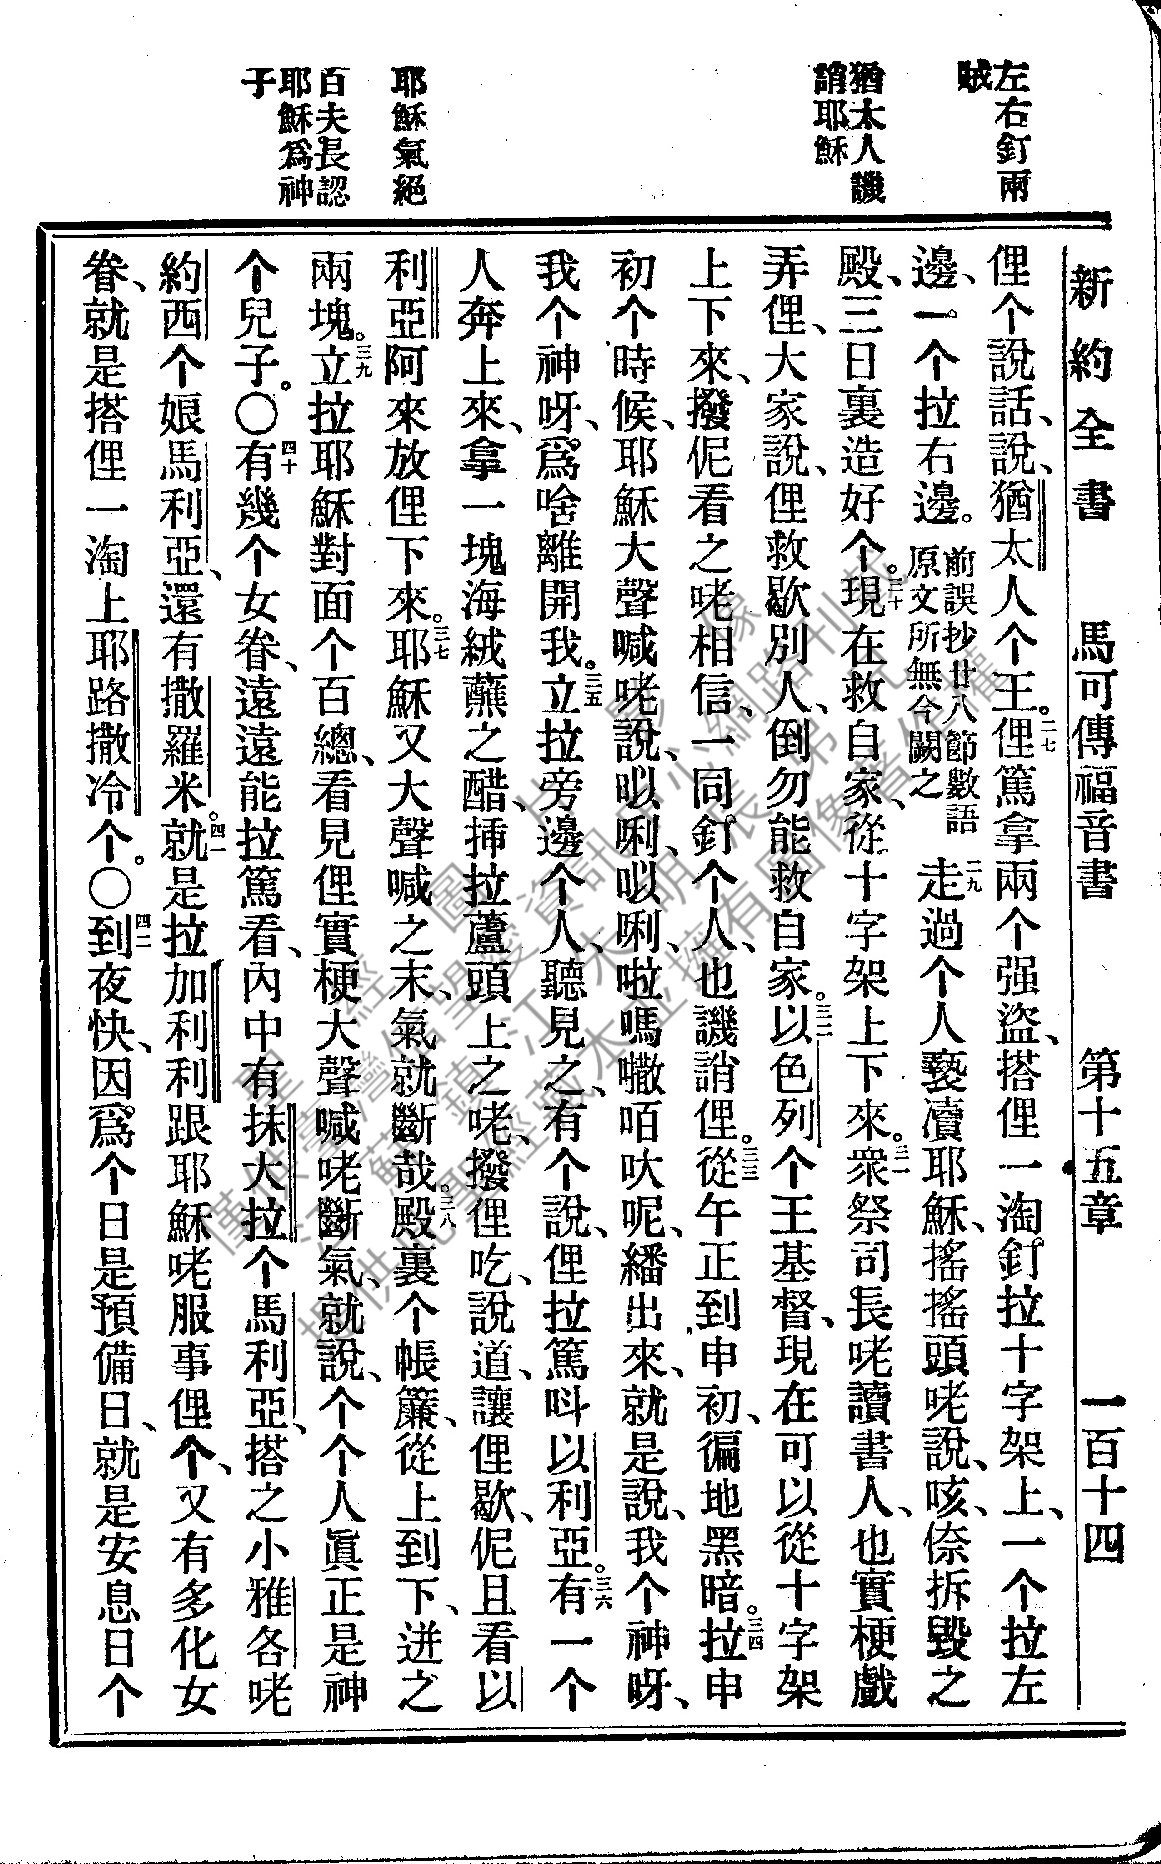 新約全書　馬可傳福音書　第十五章　一百十四
左右釘兩
賊
猶太人譏
誚耶穌
耶穌氣絕
百夫長認
耶穌爲神
子
俚个說話、說、猶太人个王。二七俚篤拿兩个强盜、搭俚一淘釘拉十字架上、一个拉左
邊、一个拉右邊。前誤抄廿八節數語原文所無今闕之二九走過个人褻瀆耶穌、搖搖頭咾說、咳、倷拆毀之
殿、三日裏造好个。三十現在救自家、從十字架上下來。三一衆祭司長咾讀書人、也實梗戲
弄俚、大家說、俚救歇別人、倒勿能救自家。三二以色列个王基督、現在可以從十字架
上下來、撥伲看之咾相信、一同釘个人、也譏誚俚。三三從午正到申初、徧地黑暗。三四拉申
初个時候、耶穌大聲喊咾說、以唎、以唎、啦嗎㘔咟呔呢、繙出來、就是說、我个神呀、
我个神呀、爲啥離開我。三五立拉旁邊个人、聽見之、有个說、俚拉篤呌以利亞。三六有一个
人奔上來、拿一塊海絨蘸之醋、揷拉蘆頭上之咾、撥俚吃、說道、讓俚歇、伲且看以
利亞阿來放俚下來。三七耶穌又大聲喊之末、氣就斷哉。三八殿裏个帳簾、從上到下、迸之
兩塊。三九立拉耶穌對面个百總、看見俚實梗大聲喊咾斷氣、就說、个个人眞正是神
个兒子。○四十有幾个女眷、遠遠能拉篤看、內中有抹大拉个馬利亞、搭之小雅各咾
約西个娘馬利亞、還有撒羅米。四一就是拉加利利跟耶穌咾服事俚个、又有多化女
眷、就是搭俚一淘上耶路撒冷个。○四二到夜快、因爲个日是預備日、就是安息日个